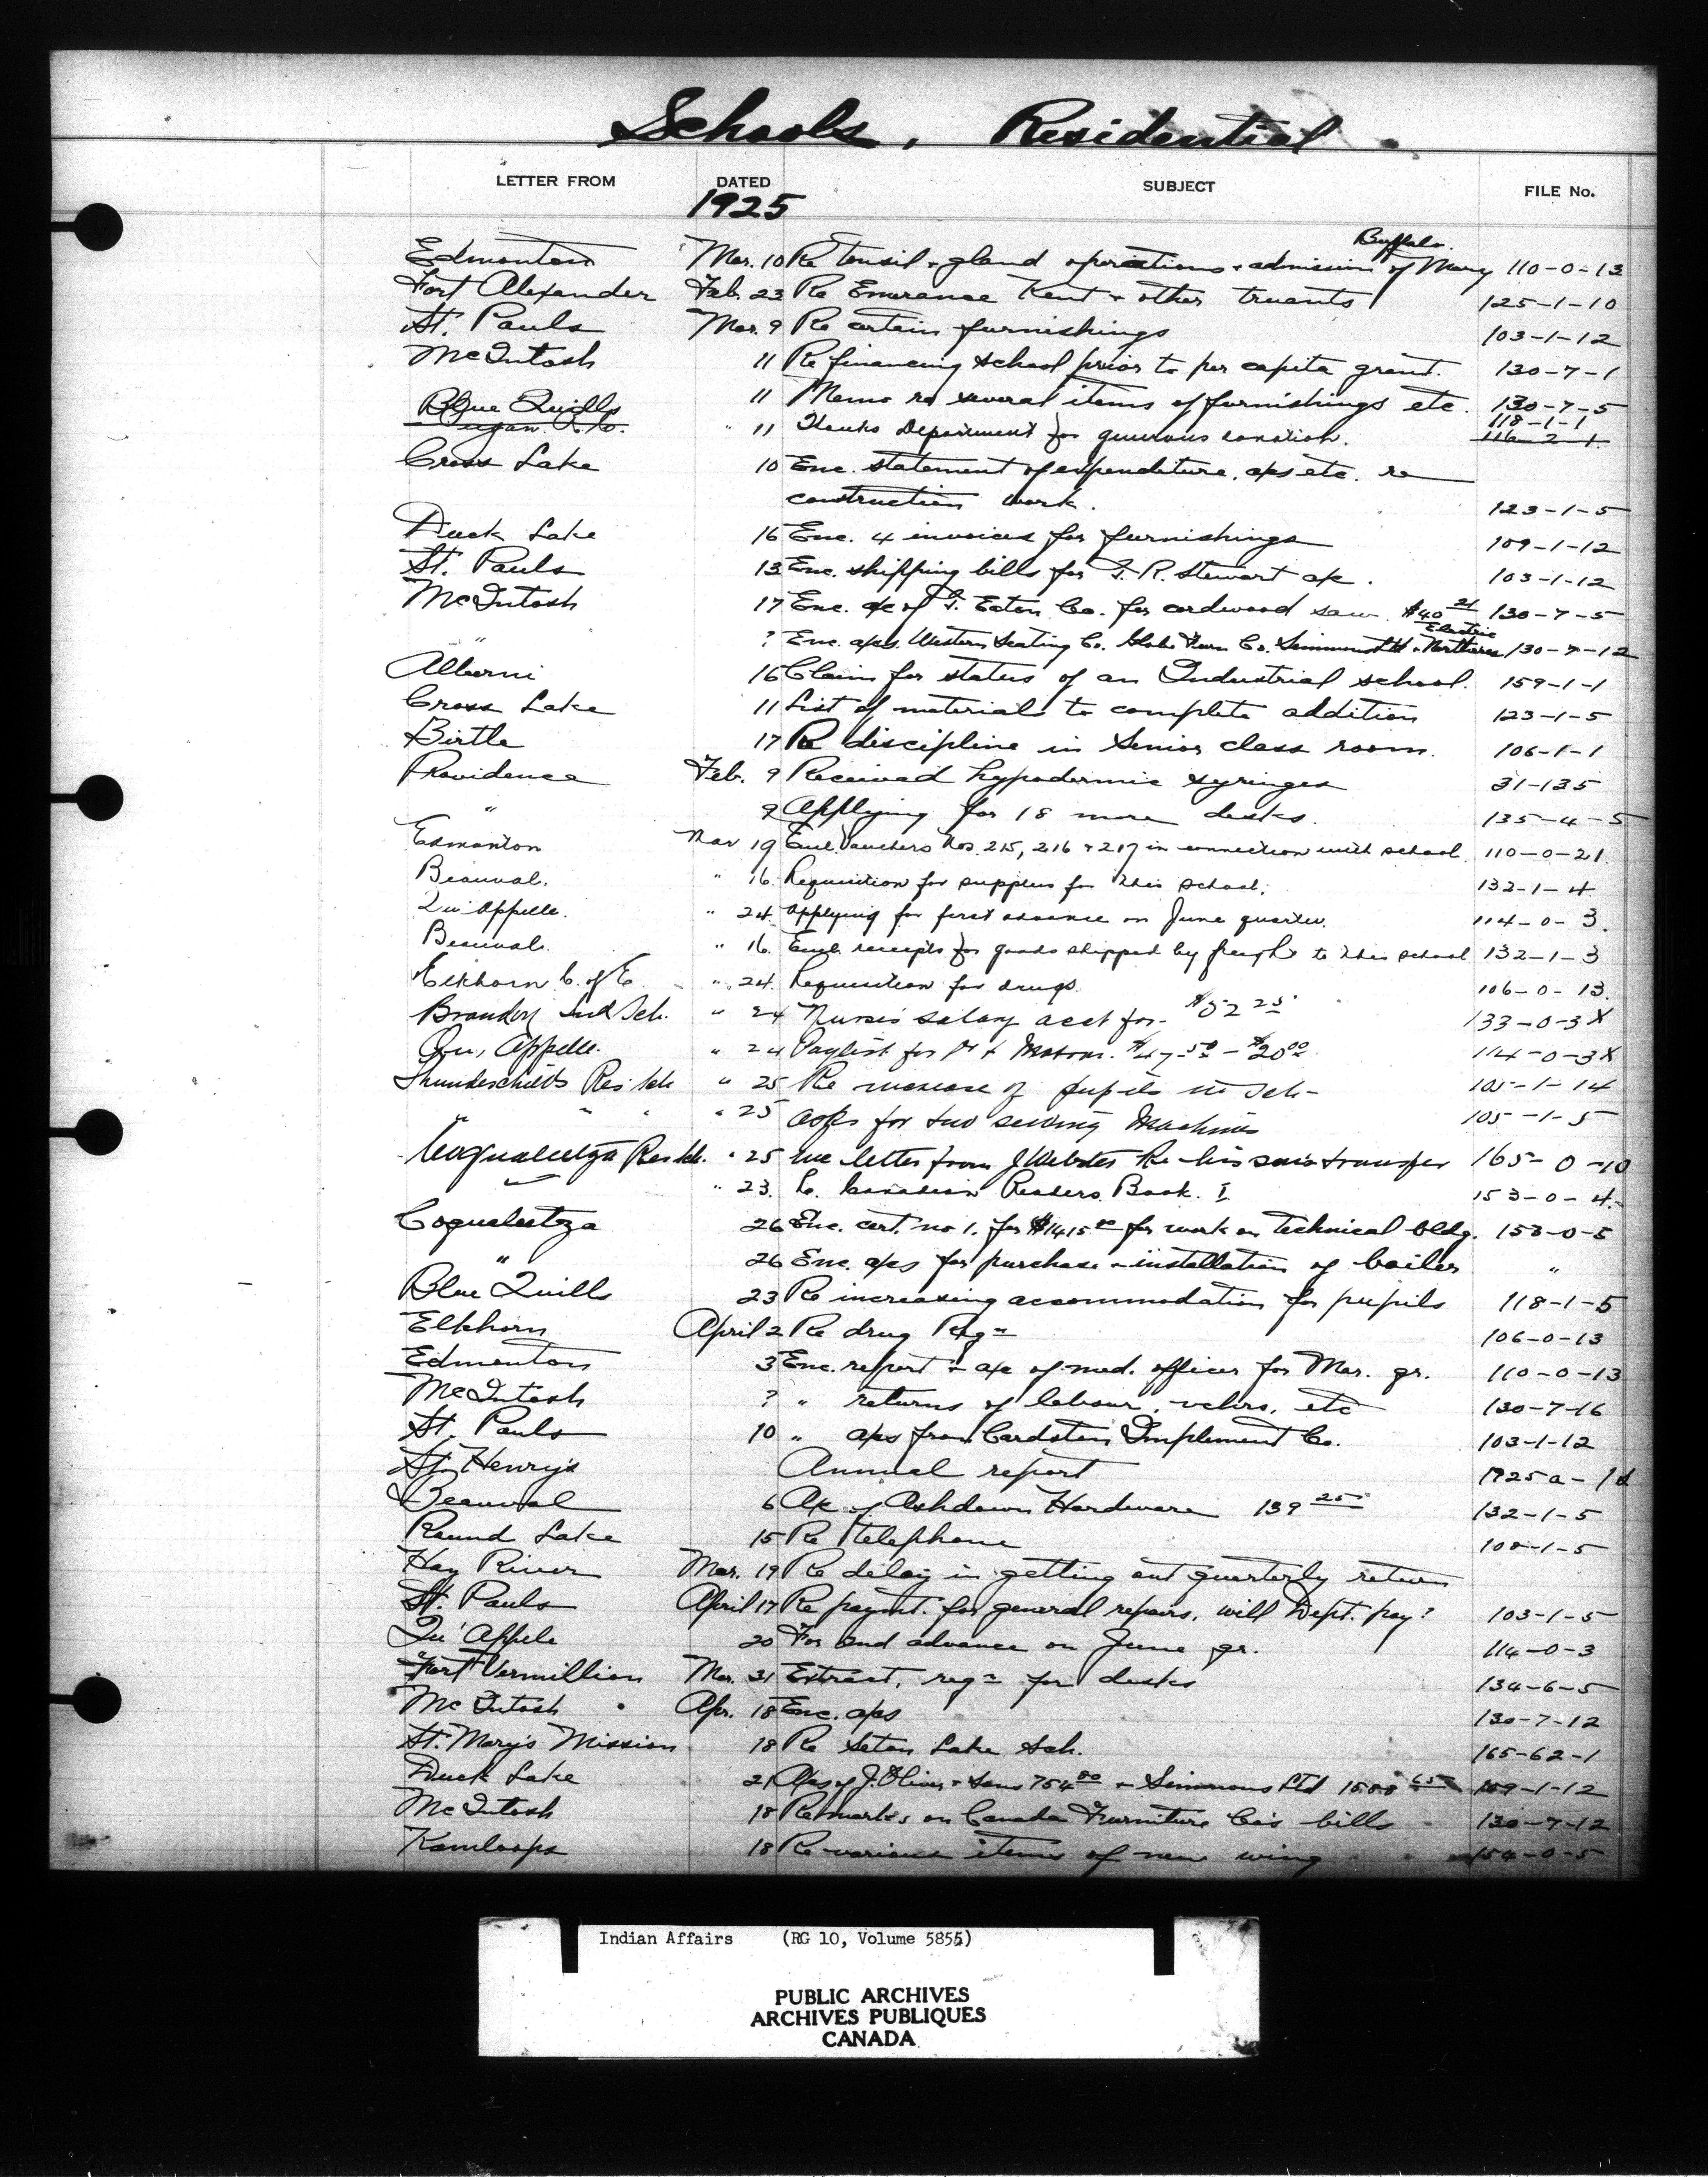 Schools, Residential.
LETTER FROM DATED SUBJECT FILE No.
1925
Buffalo.
Edmonton Mar. 10 Re tonsil + gland operations + admission of Mary 110-0-13
Fort Alexander Feb. 23 Re Emerance Kent + other truants 125-1-10
St. Pauls Mar. 9 Re certain furnishings 103-1-12
McIntosh 11 Re financing school prior to per capita grant. 130-7-1
11 Memo re several items of furnishings etc. 130-7-5
Blue Quills 118-1-1
" 11 Thanks Department for generous donation. 116-2-1
Cross Lake 10 Enc. statement of expenditure, a/cs etc. re
construction work. 123-1-5
Duck Lake 16 Enc. 4 invoices for furnishings 109-1-12
St. Pauls 13 Enc. shipping bills for T. R. Stewart a/c. 103-1-12
McIntosh 17 Enc. a/c of T. Eaton Co. for cordwood saw. $40 21 130-7-5
Electric
" ? Enc. a/cs. Western Seating Co. Globe Furn Co. Simmons Ltd + Northern 130-7-12
Alberni 16 Claim for status of an Industrial school. 159-1-1
Cross Lake 11 List of materials to complete addition 123-1-5
Birtle 17 Re discipline in Senior class room. 106-1-1
Providence Feb. 9 Received hypodermic syringes 31-135
" 9 Applying for 18 more desks. 135-4-5
Edmonton Mar 19 Encl. Vouchers Nos. 215, 216 + 217 in connection with school. 110-0-21.
Beauval. " 16. Requisition for supplies for this school. 132-1-4.
Qu'Appelle. " 24. Applying for first advance on June quarter. 114-0-3.
Beauval. " 16. Encl. receipts for goods shipped by freight to this school 132-1-3
Elkhorn C. of E. " 24. Requisition for drugs. 106-0-13.
Brandon Ind Sch. " 24 Nurse's salary acct for- $52 25 133-0-3 X
Qu, Appelle. " 24 Paylist for Dr + Matron. $47 50 - $20 00 114-0-3 X
Thunderchilds Res Sch " 25 Re increase of pupils in Sch- 105-1-14
" " " " 25 Acks for two sewing Machines 105-1-5
Coqualeetza Res Sch. " 25 Enc letter from J Webster Re his son's transfer 165-0-10
" " 23. Canadian Readers Book. I. 153-0-4.
Coqualeetza 26 Enc. cert. no 1. for $1415 00 for work on Technical bldg. 153-0-5
" 26 Enc. a/cs for purchase + installation of boiler "
Blue Quills 23 Re increasing accommodation for pupils 118-1-5
Elkhorn April 2 Re drug Reqn 106-0-13
Edmonton 3 Enc. report + a/c of med. officer for Mar. qr. 110-0-13
McIntosh ? " returns of labour, vchrs, etc 130-7-16
St. Pauls 10 " a/cs from Cardston Implement Co. 103-1-12
St. Henry's Annual report 1925a-
Beauval 6 A/c of Ashdown Hardware 139 25 132-1-5
Round Lake 15 Re telephone 108-1-5
Hay River Mar. 19 Re delay in getting out quarterly return
St. Pauls April 17 Re paymt. for general repairs, will Dept. pay? 103-1-5
Qu'Appele 20 For 2nd advance on June qr. 114-0-3
Fort Vermillion Mar. 31 Extract, reqn for desks 134-6-5
McIntosh Apr. 18 Enc. a/cs 130-7-12
St. Mary's Mission 18 Re Seton Lake Sch. 165-62-1
Duck Lake 21 A/cs of J. Oliver + Sons 754 80 + Simmons Ltd 1588 65 109-1-12
McIntosh 18 Remarks on Canada Furniture Co's bills 130-7-12
Kamloops 18 Re various items of new wing 154-0-5
Indian Affairs (RG 10, Volume 5855)
PUBLIC ARCHIVES
ARCHIVES PUBLIQUES
CANADA